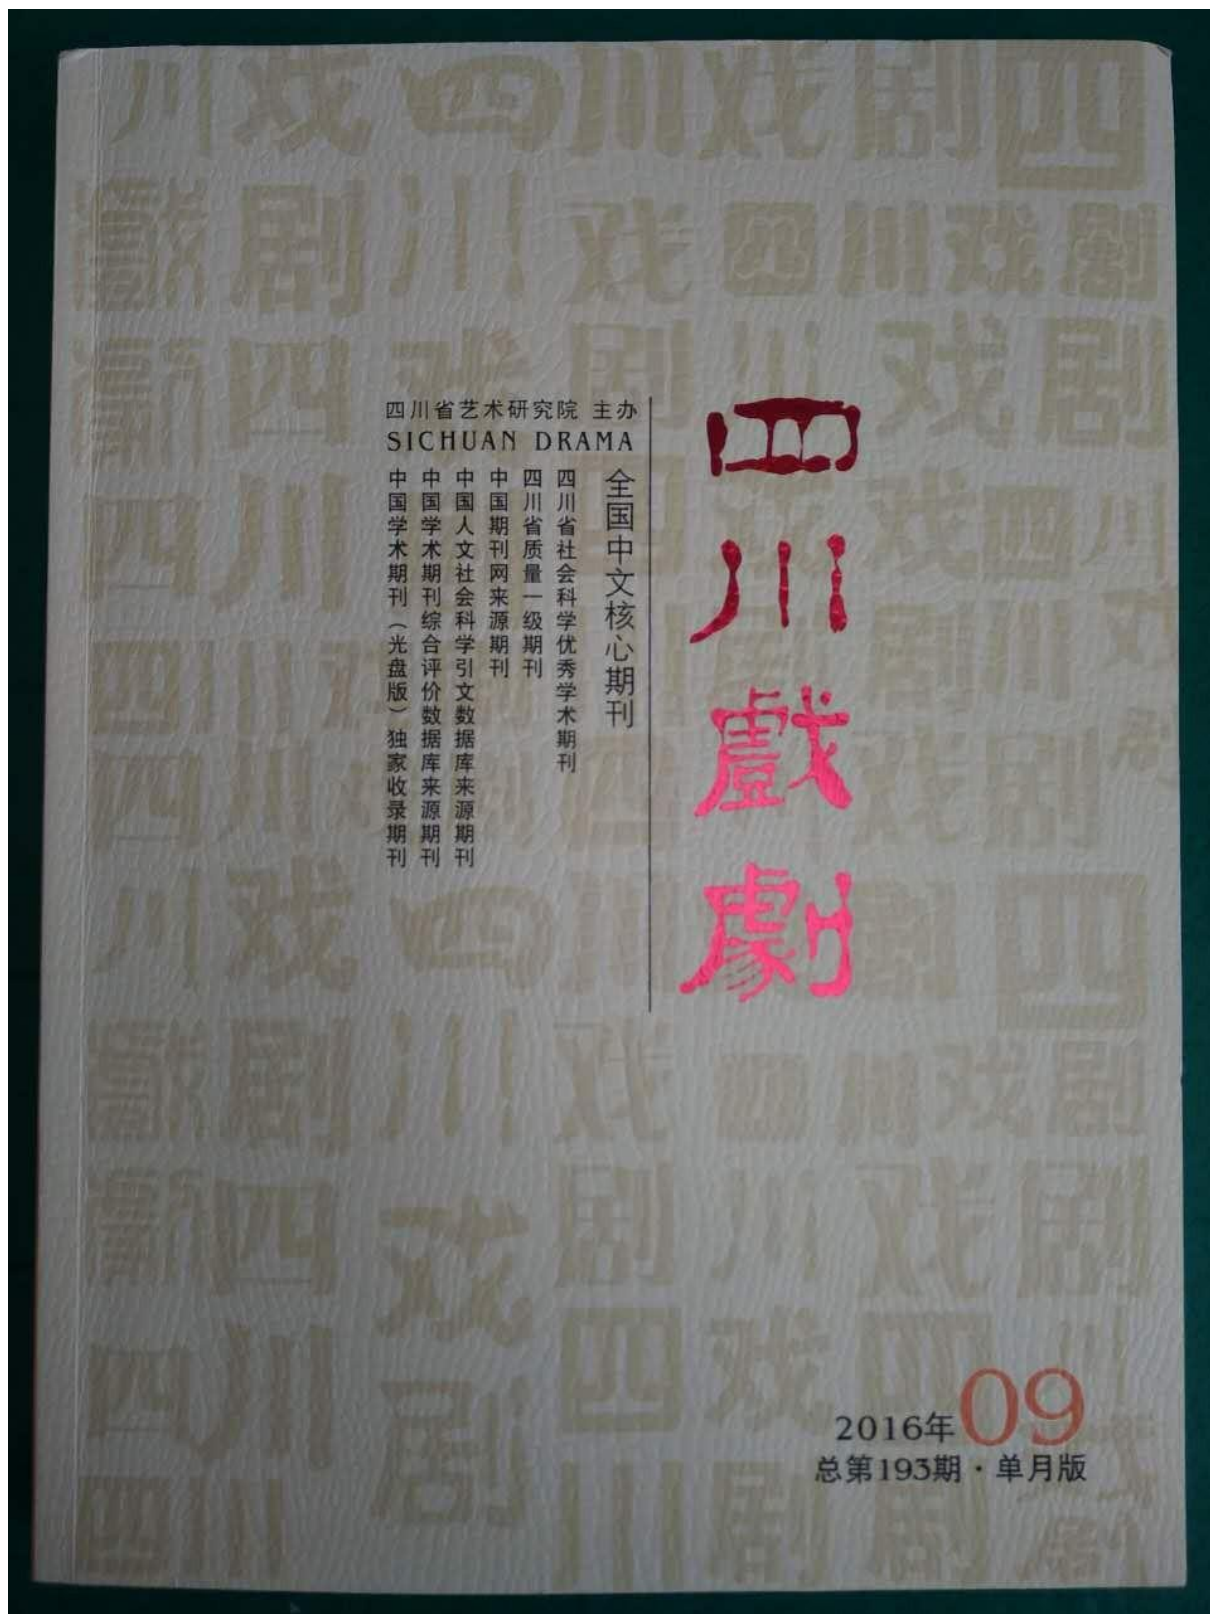 四川戲劇
四川省艺术研究院 主办
SICHUAN DRAMA
全国中文核心期刊
四川省社会科学优秀学术期刊
四川省质量一级期刊
中国期刊网来源期刊
中国人文社会科学引文数据库来源期刊
中国学术期刊综合评价数据库来源期刊
中国学术期刊（光盘版）独家收录期刊
2016年09
总第193期·单月版